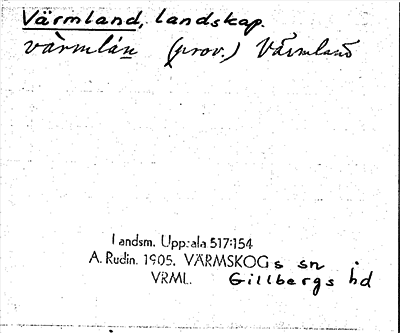 Värmland, landskap.
värmlán (prov.) Värmland
Landsm. Uppsala 517:154
A. Rudin. 1905. VÄRMSKOGs sn
VRML. Gillbergs hd